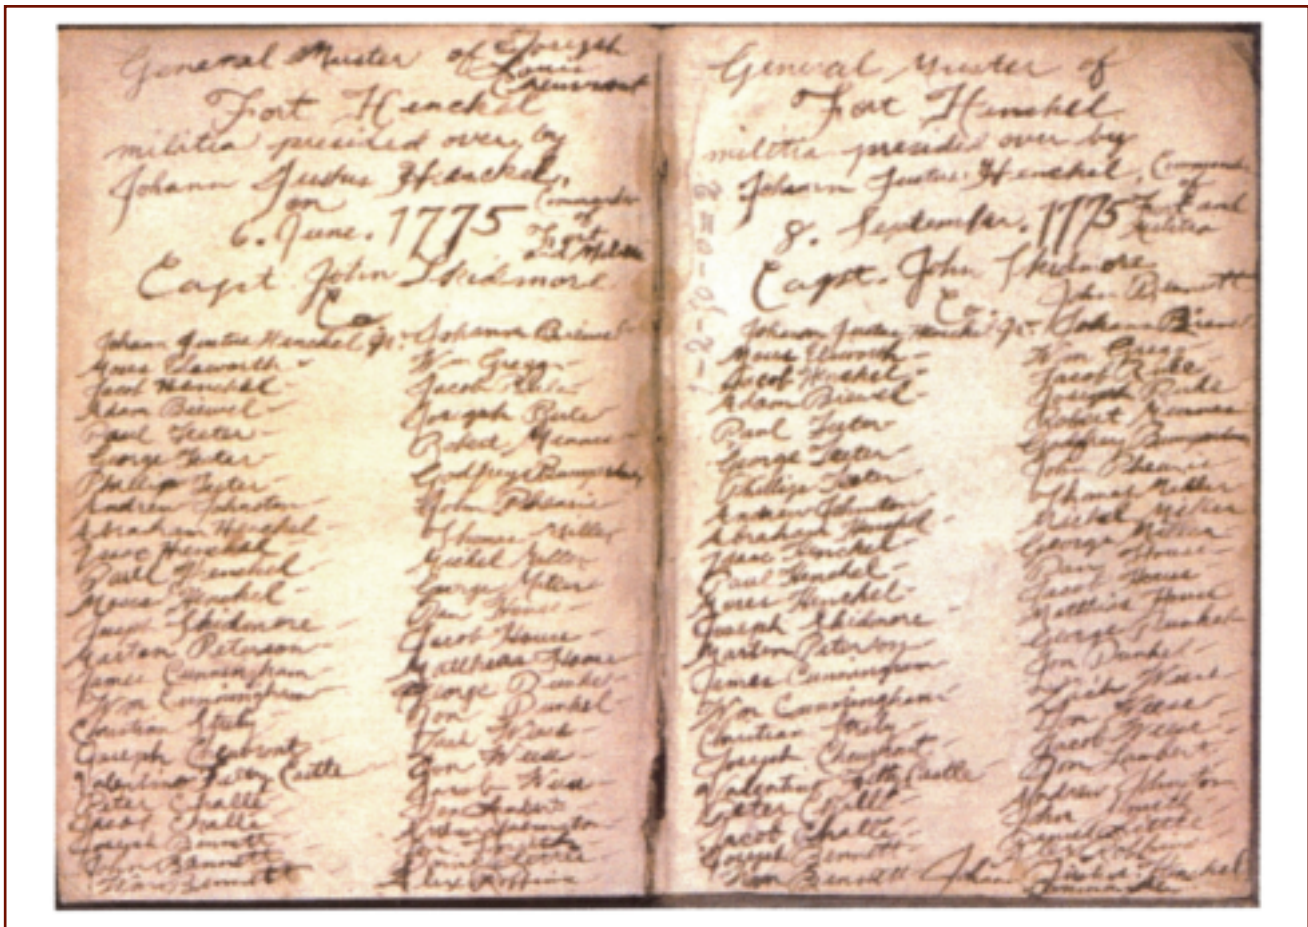 General Muster of Joseph
Louis
Cheuvront
Fort Henckel
militia presided over by
Johann Justus Henckel,
on Commander
of
6. June. 1775 Fort
and Militia
Capt. John Skidmore
Co.
Johann Justus Henckel, Jr.
Moses Elsworth
Jacob Henckel
Adam Biewel
Paul Teeter
George Teeter
Phillip Teter
Andrew Johnston
Abraham Henckel
Isaac Henckel
Paul Henckel
Moses Henckel
Joseph Skidmore
Martin Peterson
James Cunningham
Wm Cunningham
Christian Stuly
Joseph Cheuvront
Valentine Castle
Peter Challe
Isaac Challe
Joseph Bennett
John Bennett
Wm Bennett
Johannn Biewel
Wm Gregg
Jacob Rule
Joseph Rule
Robert Minnes
Godfrey
John Phoenix
Thomas Miller
Michel Miller
George Miller
Dan House
Jacob House
Matthias House
George Dunkel
Jon Dunkel
Weese
Jon Weese
Jacob Weese
Jon Lambert
Andrew Johnston
Alex Roffins
General Muster of
Fort Henckel
militia presided over by
Johann Justus Henckel, Commander
of
8. September. 1775 Fort and
Militia
Capt. John Skidmore
Co. John Bennett
Johann Justus Henckel Jr.
Moses Elsworth
Jacob Henckel
Adam Biewel
Paul Teter
George Teeter
Phillip Teeter
Andrew Johnston
Abraham Henckel
Isaac Henckel
Paul Henckel
Moses Henckel
Joseph Skidmore
Martin Peterson
James Cunningham
Wm Cunningham
Christian Stuly
Joseph Cheuvront
Valentine Castle
Peter Challe
Jacob Challe
Joseph Bennett
Wm Bennett
Johann Biewel
Wm Gregg
Jacob Rule
Joseph Rule
Robert Minnes
Godfrey
John Phoenix
Thomas Miller
Michel Miller
George Miller
Dan House
Jacob House
Matthias House
George Dunkel
Jon Dunkel
Weese
Jon Weese
Jacob Weese
Jon Lambert
Andrew Johnston
John
Johann Justus Henckel
Commander